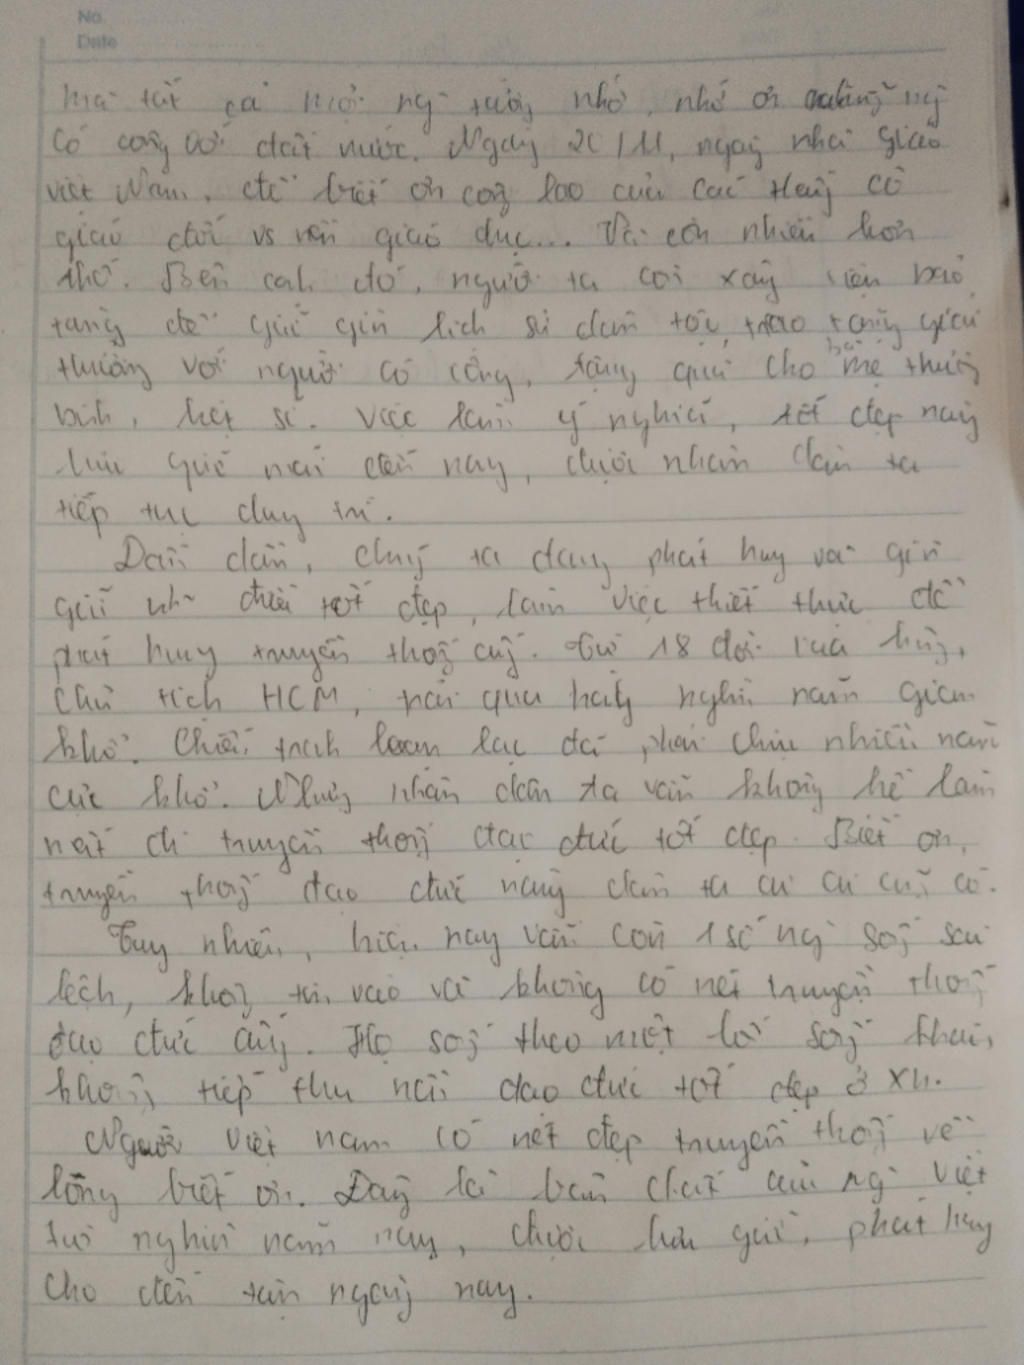 No.
Date
mà tất cả mọi ng tưởng nhớ, nhớ ơn những ng
có công với đất nước. Ngày 20/11, ngày nhà giáo
việt Nam, để biết ơn công lao của các thầy cô
giáo đối vs nền giáo dục... Và còn nhiều hơn
thế. Bên cạh đó, người ta còn xây viện bảo
tàng để giữ gìn lịch sử dân tộc, trao tặng giải
thưởng với người có công, tặng quà cho bà mẹ thương
binh, liệt sĩ. Việc làm ý nghĩa, tốt đẹp này
lưu giữ mãi đến nay, được nhân dân ta
tiếp tục duy trì.
Dần dần, chúg ta đang phát huy và gìn
giữ nh điều tốt đẹp, làm việc thiết thực để
phát huy truyền thốg ấy. Từ 18 đời vua hùng,
chủ tịch HCM, trải qua hàng nghìn năm gian
khổ. Chiến tranh loạn lạc đã phải chịu nhiều năm
cực khổ. Nhưng nhân dân ta vẫn không hề làm
mất đi truyền thốg đạo đức tốt đẹp. Biết ơn,
truyền thốg đạo đức này dân ta ai ai cũg có.
Tuy nhiên, hiện nay vẫn còn 1 số ng sốg sai
lệch, khôg tin vào và không có nét truyền thốg
đạo đức ấy. Họ sốg theo một lối sốg khác,
khôg tiếp thu nền đạo đức tốt đẹp ở XH.
Người Việt nam có nét đẹp truyền thốg về
lòng biết ơn. Đây là bản chất của ng Việt
từ nghìn năm nay, được lưu giữ, phát huy
cho đến tận ngày nay.